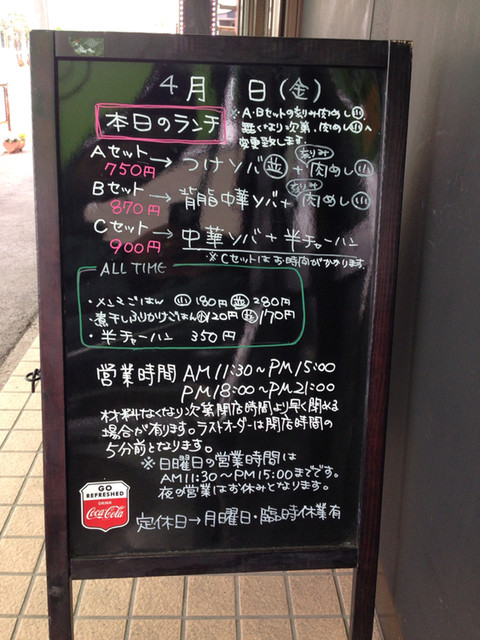 4月 日(金)
本日のランチ
※A・Bセットの刻み肉めし小
無くなり次第、肉めし小へ
変更致します。
Aセット
750円
→つけソバ並+刻み肉めし小
Bセット
870円
→背脂中華ソバ+刻み肉めし小
Cセット
900円
→中華ソバ+半チャーハン
※Cセットはお時間がかかります。
ALL TIME
・メンマごはん 小180円 並280円
・煮干しふりかけごはん小120円 並170円
・半チャーハン 350円
営業時間 AM11:30~PM15:00
PM18:00~PM21:00
材料なくなり次第閉店時間より早く閉める
場合が有ります。ラストオーダーは閉店時間の
5分前となります。
※日曜日の営業時間は
AM11:30~PM15:00までです。
夜の営業はお休みとなります。
GO
REFRESHED
DRINK
Coca-Cola
定休日→月曜日・臨時休業有